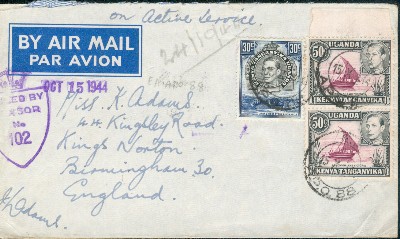 on Active Service.
BY AIR MAIL
PAR AVION
OCT 15 1944
ED BY
No
102
Miss. K. Adams.
44. Kingsley Road.
Kings Norton
Birmingham 30.
England.
30c
30c
50c
UGANDA
KENYA TANGANYIKA
50c
UGANDA
KENYA TANGANYIKA